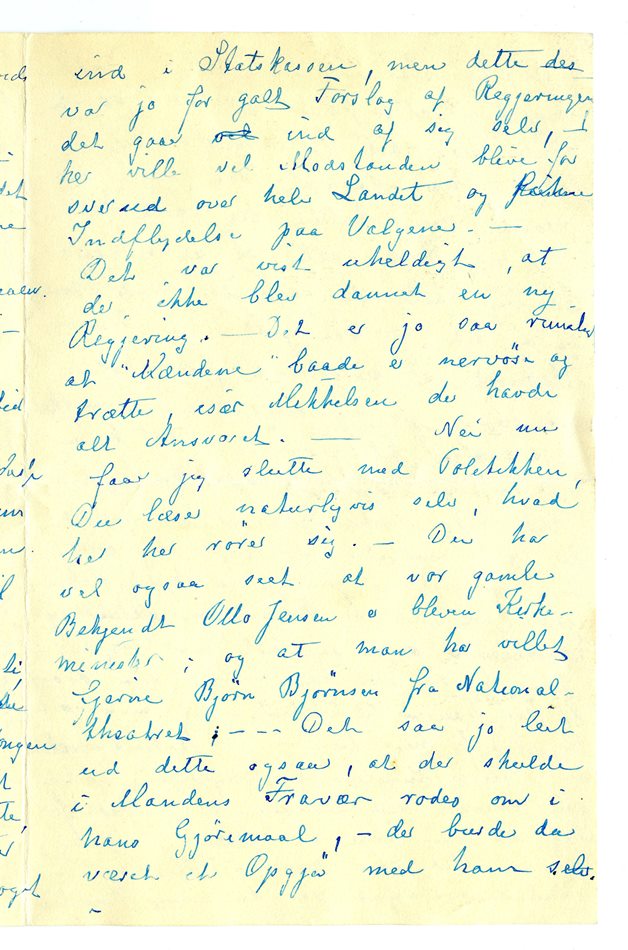 ind i Statskassen, men dette
var jo for galt Forslag af Regjeringen
det gaar ind af sig selv, I
her ville vel Modstanden blive for
svær ud over hele Landet og
Indflydelse paa Valgene. —
Det var vist uheldigt, at
der ikke blev dannet en ny
Regjering. — Det er jo saa rimelig
at "Mændene" baade er nervöse og
trætte, især Mikkelsen der havde
alt Ansvaret. — Nei nu
faar jeg slutte med Politikken,
Du læser naturligvis selv, hvad
her her rörer sig. — Du har
vel ogsaa seet at vor gamle
Bekjendt Otto Jensen er bleven Kirke-
minister; og at man har villet
fjerne Bjørn Bjørnsen fra National-
theatret; — — Det saa jo leit
ud dette ogsaa, at der skulde
i Mandens Fravær rodes om i
hans Gjöremaal, — der burde da
været et Opgjör med ham selv.
—